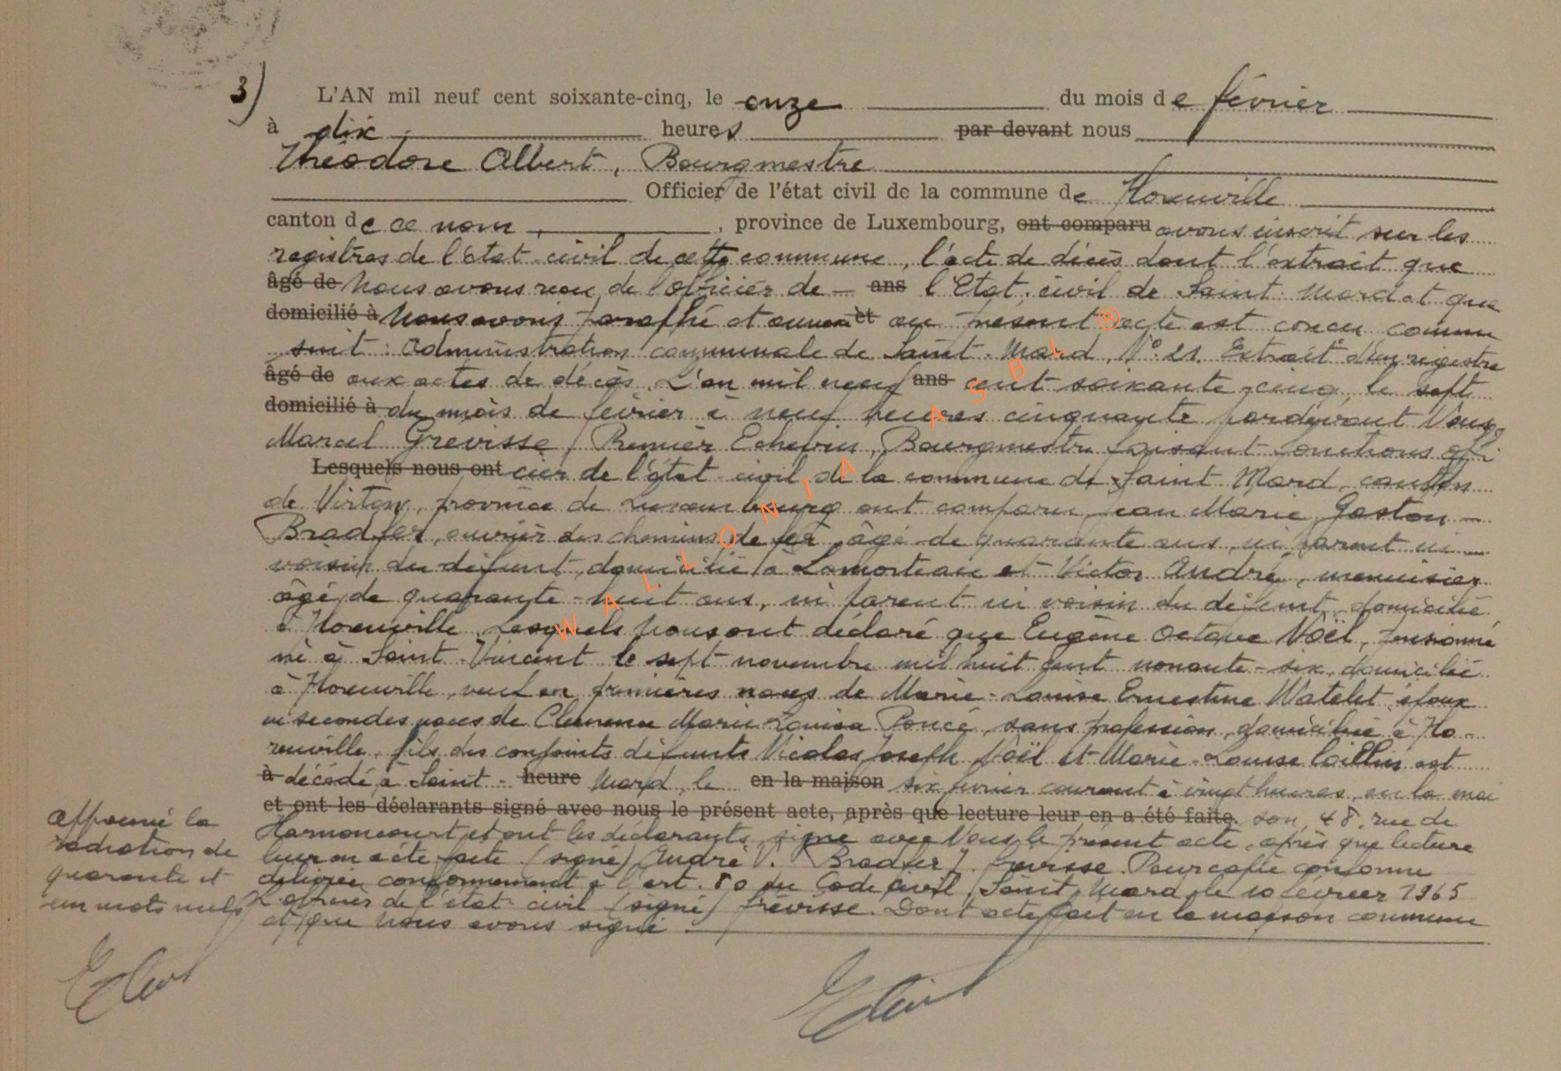 3) L'AN mil neuf cent soixante-cinq, le onze du mois de février
à dix heures par devant nous
Théodore Albert, Bourgmestre
Officier de l'état civil de la commune de Florenville
canton de ce nom, province de Luxembourg, ont comparu avons inscrit sur les
registres de l'état civil de cette commune, l'acte de décès dont l'extrait que
âgé de Nous avons reçu de l'officier de ans l'Etat civil de Saint-Mard et que
domicilié à Nous avons paraphé et annexé et au présent acte est conçu comme
suit : Administration communale de Saint-Mard N° 21 Extrait d'un registre
âgé de aux actes de décès. L'an mil neuf ans cent soixante-cinq, le sept
domicilié à du mois de février à neuf heures cinquante pardevant Nous
Marcel Grévisse, Premier Echevin, Bourgmestre faisant fonctions offi
Lesquels nous ont cier de l'état civil de la commune de Saint Mard, canton
de Virton, province de Luxembourg ont comparu Jean Marie Gaston
Bradfer, ouvrier des chemins de fer, âgé de quarante ans, ni parent ni
voisin du défunt, domicilié à Lamorteau et Victor André, menuisier
âgé de quarante-huit ans, ni parent ni voisin du défunt, domicilié
à Florenville. Lesquels nous ont déclaré que Eugène Octave Noël, pensionné
né à Saint-Vincent le sept novembre mil huit cent nonante-six, domicilié
à Florenville, veuf en premières noces de Marie-Louise Ernestine Watelet époux
en secondes noces de Clémence Marie Louisa Poncé, sans profession, domiciliée à Flo-
renville, fils des conjoints défunts Nicolas Joseph Noël et Marie-Louise est
à décédé à Saint- heure Mard, le en la maison six février courant à vingt heures, en la mai
et ont les déclarants signé avec nous le présent acte, après que lecture leur en a été faite. son, 48, rue de
Harnoncourt, et ont les déclarants signé avec Nous le présent acte, après que lecture
leur en a été faite (signé) André V. Bradfer J. Grévisse. Pour copie conforme
délivrée conformément à l'art. 80 du Code civil, Saint Mard, le 10 février 1965
L'officier de l'état civil (signé) Grévisse. Dont acte fait en la maison commune
et que nous avons signé
approuvé la
radiation de
quarante et
un mots nuls
WALLONIA ASBL ®